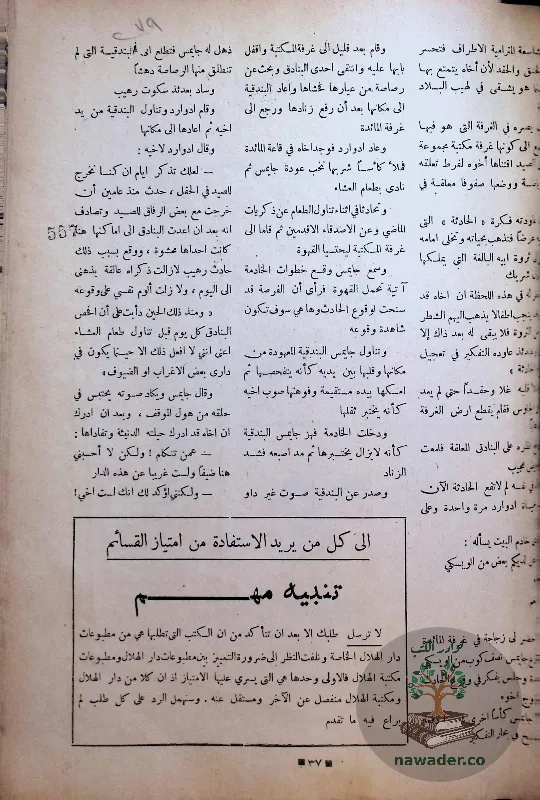 ٥٧٩
شاسعة المترامية الاطراف فتحسر
الحنق والحقد لأن أخاه يتمتع بهـا
ما هو يشقى في لهيب البـلاد
بصره في الغرفة التي هو فيهـا
الى كونها غرفة مكتبة مجموعة
الصيد اقتناها أخوه لفرط تعلقه
ووضعها صفوفا معلقة في
فكرة « الحادثة » التي
فتذهب بحياته وتخلى امامه
ثروة ابيه البالغة التي يملكهـا
شريك
في هذه اللحظة ان اخاه قد
اطفالا يذهب اليهم الشطر
الثروة فلا يبقى له بعد ذاك إلا
عاوده التفكير في تعجيل
حادثة »
قلبه غلا وحقـداً حتى لم يعد
فقام يقطع ارض الغرفة
نظره على البنادق المعلقة
لم لا تقع الحادثة الآن
ادوارد مرة واحدة وعلى
خادم البيت يسأله :
لديكم بعض من الويسكي
الى زجاجة في غرفة المائدة
جايمس نصف كوب من الويسكي
وجلس يفكر في
اخوه
جايمس كأساً اخرى
في بحار التفكير
وقام بعد قليل الى غرفة المكتبة واقفل
بابها عليه وانتقى احدى البنادق وبحث عن
رصاصة من عيارها فحشاها واعاد البندقية
الى مكانها بعد أن رفع زنادها ورجع الى
غرفة المائدة
وعاد ادوارد فوجد اخاه في قاعة المائدة
فملأ كأسـاً شربها نخب عودة جايمس ثم
نادى بطعام العشاء
وتحادثا في اثناء تناول الطعام عن ذكريات
الماضي وعن الاصدقاء الاقدمين ثم قاما الى
غرفة المكتبة ليحتسيا القهوة
وسمع جايمس وقـع خطوات الخادمة
آتية تحمل القهوة فرأى أن الفرصة قد
سنحت لوقوع الحادث وها هي سوف تكون
شاهدة وقوعه
وتناول جايمس البندقية المعهودة من
مكانها وقلبها بين يديه كأنه يتفحصها ثم
امسكها بيده مستقيمة وفوهتها صوب اخيه
كأنه يختبر ثقلها
ودخلت الخادمة فهز جايمس البندقية
كأنه لا يزال يختبرها ثم مد اصبعه فشـد
الزناد
وصدر عن البندقية صـوت غير داو
ذهل له جايمس فتطلع الى البندقيـة التي لم
تنطلق منها الرصاصة دهشاً
وساد بعدئذ سكوت رهيب
وقام ادوارد وتناول البندقية من يد
اخيه ثم اعادها الى مكانها
وقال ادوارد لاخيه :
— لعلك تذكر ايام ان كنـا نخرج
للصيد في الحقل ، حدث منذ عامين أن
خرجت مع بعض الرفاق للصيـد وتصادف
انه بعد ان اعدت البنادق الى اماكنها هنا
557
كانت احداها محشوة ، ووقع بسبب ذلك
حادث رهيب لا زالت ذكراه عالقة بذهني
الى اليوم ، ولا زلت ألوم نفسي على وقوعه
« ومنذ ذلك الحين دأبت على أن افحص
البنادق كل يوم قبل تناول طعام العشاء
اعني انني لا افعل ذلك الا حينما يكون في
داري بعض الاغراب او الضيوف »
وقال جايمس ويكاد صوته يحتبس في
حلقه من هول الموقف ، وبعد ان ادرك
ان اخاه قد ادرك حيلته الدنيئة وتفاداها :
— عمن تتكلم ! ولكن لا أحسبني
هنا ضيفاً ولست غريبا عن هذه الدار
— ولكني اؤكد لك انك لست اخي!
الى كل من يريد الاستفادة من امتياز القسائم
تنبيه مهـم
لا ترسل طلبك الا بعد ان تتأكد من ان الكتب التي تطلبها هي من مطبوعات
دار الهلال الخاصة ونلفت النظر الى ضرورة التمييز بين مطبوعات دار الهلال ومطبوعات
مكتبة الهلال فالاولى وحدها هي التي يسري عليها الامتياز اذ ان كلا من دار الهلال
ومكتبة الهلال منفصل عن الآخر ومستقل عنه . وسنهمل الرد على كل طلب لم
يراع فيه ما تقدم
٣٧
نوادر الكتب
nawader.co